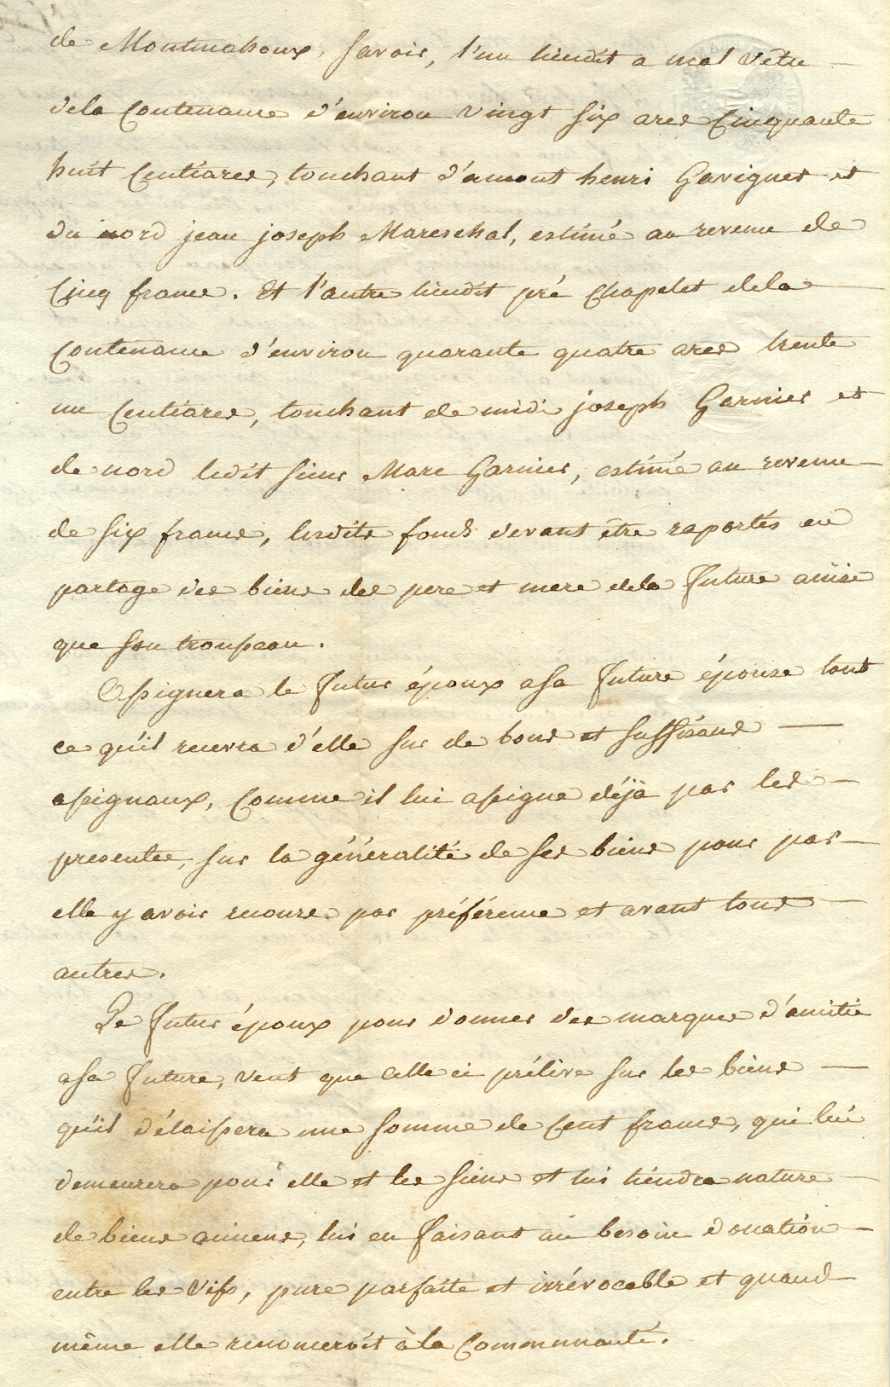 de Montmahoux, savoir, l'un lieudit a mal vêtu
dela Contenance d'environ vingt six ares Cinquante
huit Centiares, touchant d'amont henri Gavignet et
du nord jean joseph Mareschal, estimé au revenu de
Cinq francs. Et l'autre lieudit pré Chapelet dela
Contenance d'environ quarante quatre ares trente
un Centiares, touchant de midi joseph Garnier et
de nord ledit sieur Marc Garnier, estimé au revenu
de six francs, lesdits fonds devant être raportés en
partage des biens des pere et mere dela future ainsi
que son trousseau.
Assignera le futur époux asa future épouse tout
ce qu'il recevra d'elle sur de bons et suffisans
assignaux, Comme il lui assigne déjà par les
presentes, sur la généralité de ses biens pour par
elle y avoir recours par préférence et avant tous
autres.
Le futur époux pour donner des marques d'amitié
asa future, veut que celle ci prélève sur les biens
qu'il délaissera une somme de Cent francs, qui lui
demeurera pour elle et les siens et lui tiendra nature
de biens anciens, lui en faisant au besoin donation
entre les vifs, pure parfaite et irrévocable et quand
même elle renonceroit à la Communauté.